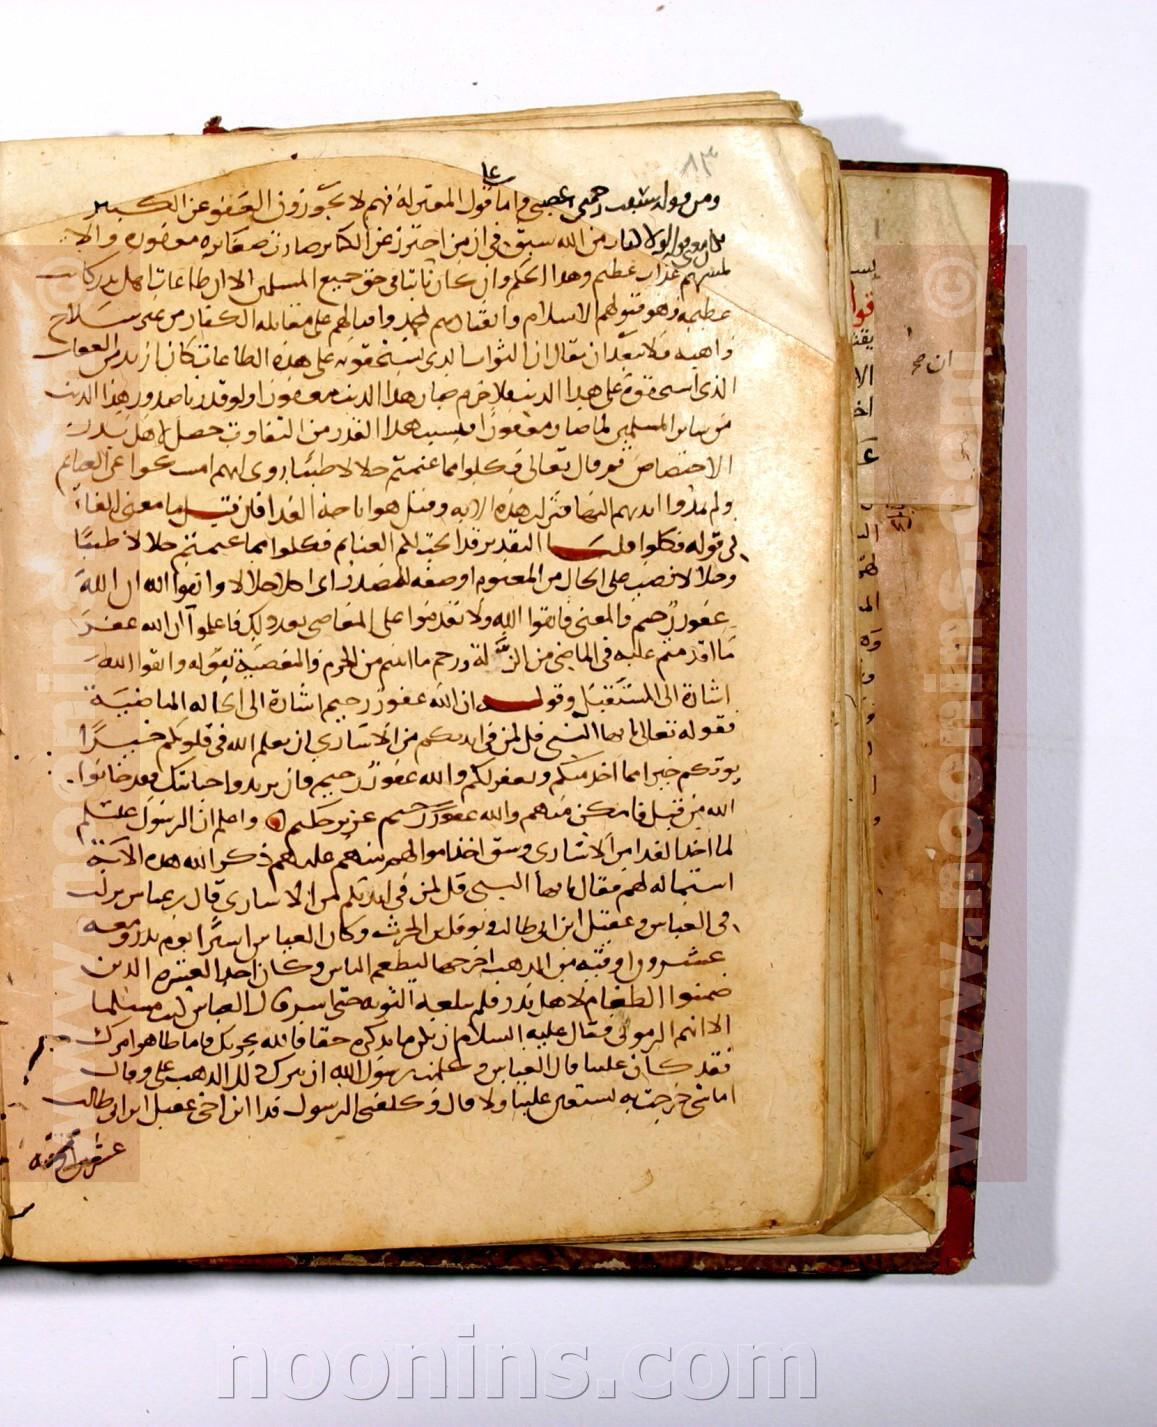 ٨٣
ومن قوله سبقت رحمتي غضبي واما قول المعتزلة فهم لا يجوزون العفو عن الكبير
من الله سبق في ان من احترز عن الكبائر صارت صغائره مغفوره والا
لمسهم عذاب عظيم وهذا الحكم وان كان ثابتا في حق جميع المسلمين الا ان طاعات اهل بدر كانت
عظيمة وهو قبولهم الاسلام وانقيادهم لمحمد واقبالهم على مقاتلة الكفار من غير سلاح
واهبه فلا يبعد ان يقال ان الثواب الذي استحقوه على هذه الطاعات كان ازيد من العقاب
الذي استحقوه على هذا الذنب فلا جرم صار هذا الذنب مغفورا ولو قدرنا صدور هذا الذنب
من سائر المسلمين لما صار مغفورا فبسبب هذا القدر من التفاوت حصل لاهل بدر
الاختصاص ثم قال تعالى فكلوا مما غنمتم حلالا طيبا روى انهم امسكوا عن الغنائم
ولم يمدوا ايديهم اليها فنزلت هذه الاية وقيل هو اباحة الفدا فان قيل ما معنى الفاء
في قوله فكلوا قلنا التقدير قد ابحت لكم الغنائم فكلوا مما غنمتم حلالا طيبا
وحلالا نصب على الحال من المغنوم او صفة للمصدر اى اكلا حلالا واتقوا الله ان الله
غفور رحيم والمعنى فاتقوا الله ولا تقدموا على المعاصي بعد ذلك فاعلموا ان الله غفر
ما اقدمتم عليه في الماضي من الزلة ورحم ما اتيتم من الجرم والمعصية بقوله واتقوا الله
اشارة الى المستقبل وقوله ان الله غفور رحيم اشارة الى الحاله الماضية
قوله تعالى يا ايها النبي قل لمن في ايديكم من الاسارى ان يعلم الله في قلوبكم خيرا
يوتكم خيرا مما اخذ منكم ويغفر لكم والله غفور رحيم وان يريدوا خيانتك فقد خانوا
الله من قبل فامكن منهم والله غفور رحيم عزيز حكيم واعلم ان الرسول عليه السلم
لما اخذ الفدا من الاسارى وشق اخذ اموالهم منهم عليهم ذكر الله هذه الآية
استمالة لهم فقال يا ايها النبي قل لمن في ايديكم من الاسارى قال بن عباس نزلت
في العباس وعقيل ابن ابي طالب ونوفل بن الحرث وكان العباس اسيرا يوم بدر ومعه
عشرون اوقية من الذهب اخرجها ليطعم الناس وكان احد العشرة الذين
ضمنوا الطعام لاهل بدر فلم تبلغه النوبه حتى اسر قال العباس كنت مسلما
الا انهم الزموني فقال عليه السلام ان يكن ما تذكره حقا فالله يجزيك فاما ظاهر امرك
فقد كان علينا قال العباس وكلمت رسول الله ان يترك ذلك الذهب علي وقال
اما شي خرجت به لتستعين علينا فلا قال وكلفني الرسول فدا ابن اخي عقيل ابن ابي طالب
عشرين اوقيه